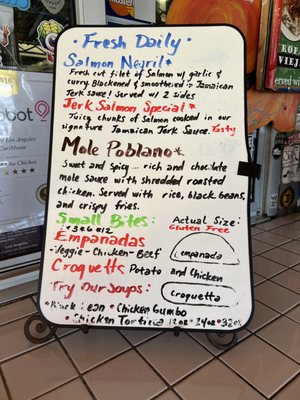 · Fresh Daily ·
Salmon Negril*
Fresh cut filet of Salmon w/ garlic &
curry Blackened & smothered in Jamaican
Jerk Sauce! Served w/ 2 sides
Jerk Salmon Special*
Juicy chunks of Salmon cooked in our
signature Jamaican Jerk Sauce. Tasty
Mole Poblano*
Sweet and Spicy... rich and chocolate
mole sauce with shredded roasted
chicken. Served with rice, black beans,
and crispy fries.
Small Bites:
Actual Size:
Gluten Free
Empanadas
-Veggie - Chicken - Beef
Empanada
Croquetts Potato and Chicken
Croquetta
Try Our Soups:
• Black Bean • Chicken Gumbo
• Chicken Tortilla 12oz 24oz 32oz
ROPA
VIEJA
served w